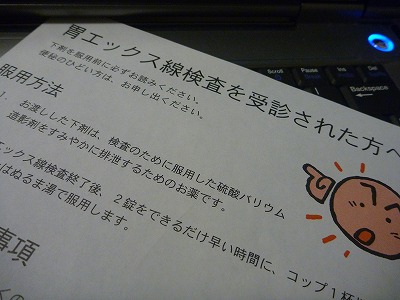 Scroll
Pause
Ins
Backspace
胃エックス線検査を受診された方へ
下剤を服用前に必ずお読みください。
便秘のひどい方は、お申し出ください。
服用方法
お渡しした下剤は、検査のために服用した硫酸バリウム
造影剤をすみやかに排泄するためのお薬です。
エックス線検査終了後、2錠をできるだけ早い時間に、コップ1杯
はぬるま湯で服用します。
事項